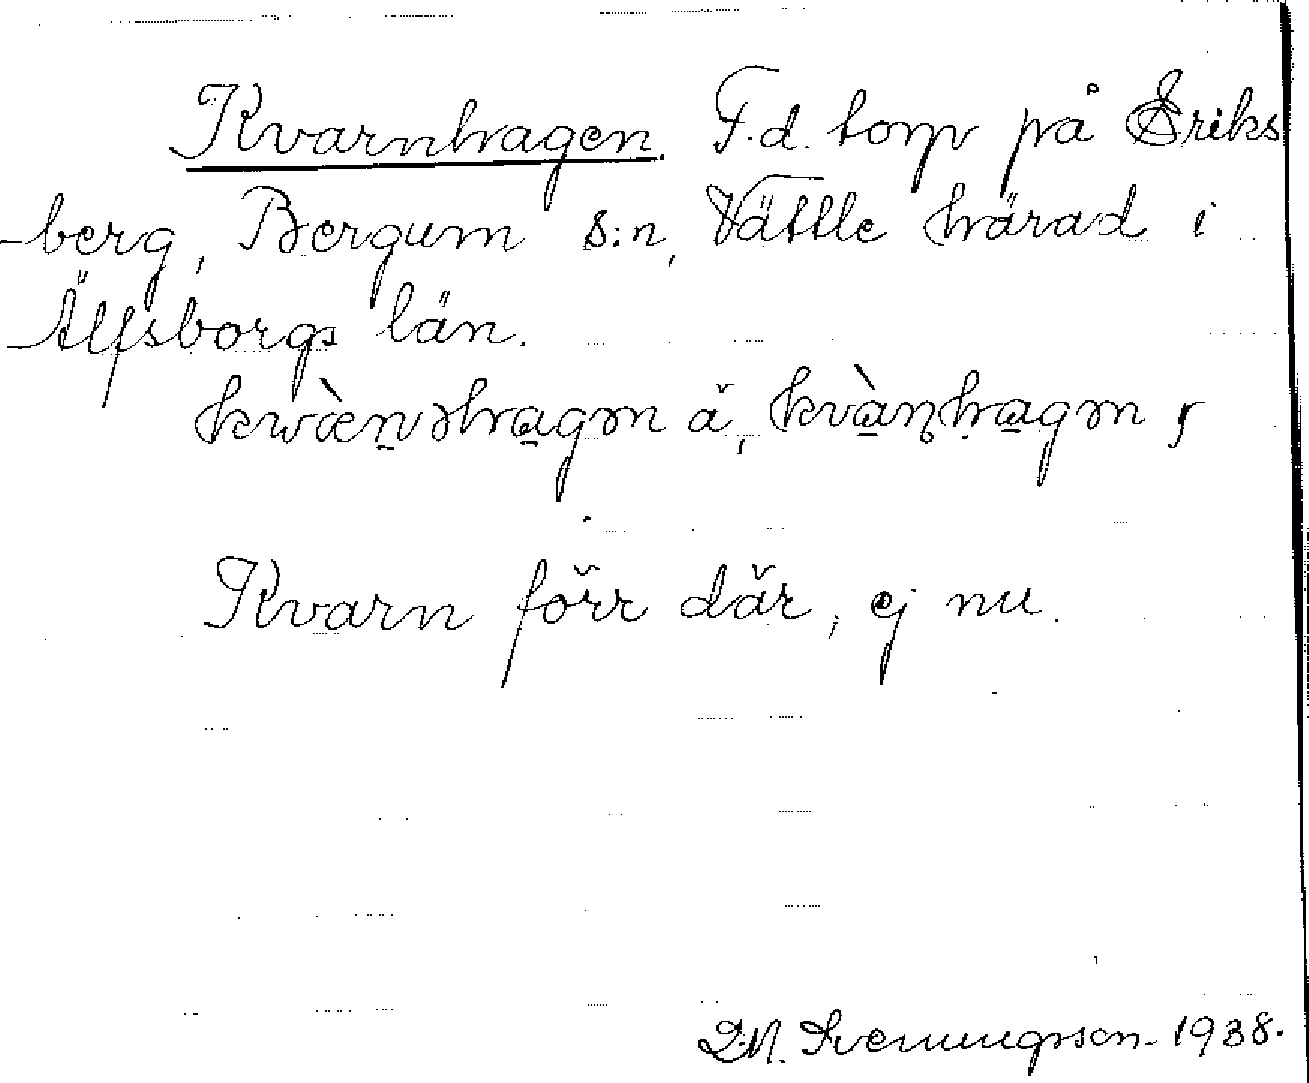 Kvarnhagen. F.d. torp på Eriks
-berg, Bergum s:n, Vättle härad i
Älfsborgs län.
kwæ̀n̠əha̠gən ä̆, kvà̠ṇha̠gən ɼ
Kvarn förr där, ej nu.
D.N. Svenungsson. 1938.